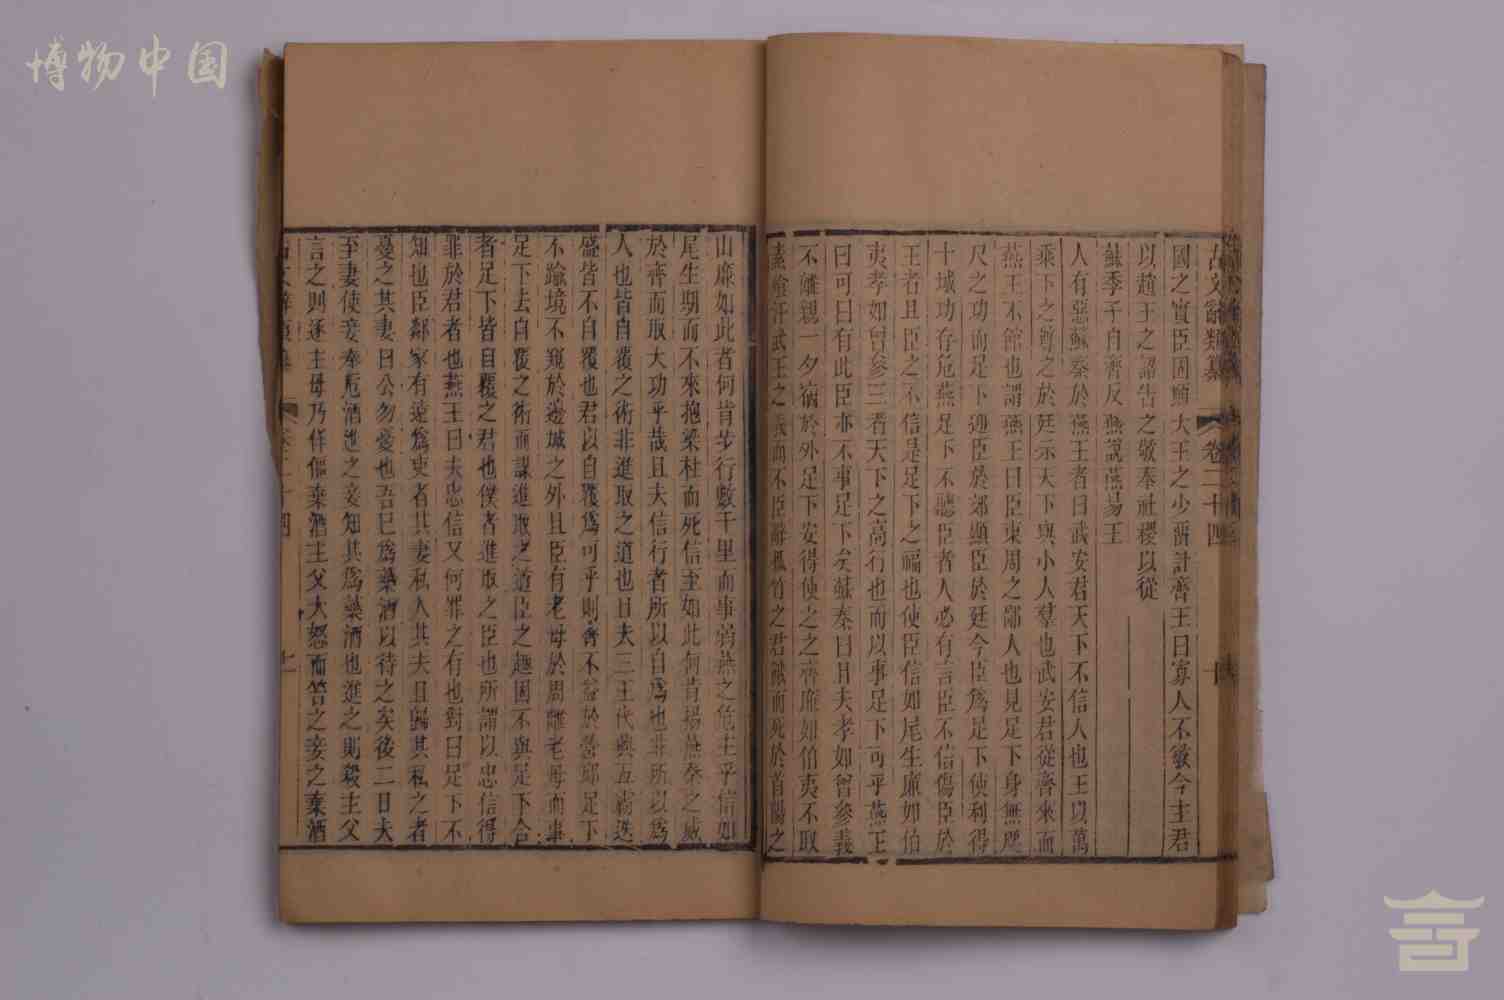 博物中国
古文辭類纂 卷二十四 十
國之實臣固願大王之少留計齊王曰寡人不敏今主君
以趙王之詔告之敬奉社稷以從
蘇季子自齊反燕說燕易王
人有惡蘇秦於燕王者曰武安君天下不信人也王以萬
乘下之尊之於廷示天下與小人羣也武安君從齊來而
燕王不館也謂燕王曰臣東周之鄙人也見足下身無咫
尺之功而足下迎臣於郊顯臣於廷今臣爲足下使利得
十城功存危燕足下不聽臣者人必有言臣不信傷臣於
王者且臣之不信是足下之福也使臣信如尾生廉如伯
夷孝如曾參三者天下之高行也而以事足下可乎燕王
曰可曰有此臣亦不事足下矣蘇秦曰且夫孝如曾參義
不離親一夕宿於外足下安得使之之齊廉如伯夷不取
素飡汙武王之義而不臣辭孤竹之君餓而死於首陽之
山廉如此者何肯步行數千里而事弱燕之危主乎信如
尾生期而不來抱梁柱而死信至如此何肯揚燕秦之威
於齊而取大功乎哉且夫信行者所以自爲也非所以爲
人也皆自覆之術非進取之道也且夫三王代興五霸迭
盛皆不自覆也君以自覆爲可乎則齊不益於營邱足下
不踰境不窺於邊城之外且臣有老母於周離老母而事
足下去自覆之術而謀進取之道臣之趨固不與足下合
者足下皆自覆之君也僕者進取之臣也所謂以忠信得
罪於君者也燕王曰夫忠信又何罪之有也對曰足下不
知也臣鄰家有遠爲吏者其妻私人其夫且歸其私之者
憂之其妻曰公勿憂也吾已爲藥酒以待之矣後二日夫
至妻使妾奉巵酒進之妾知其爲藥酒也進之則殺主父
言之則逐主母乃佯僵棄酒主父大怒而笞之妾之棄酒